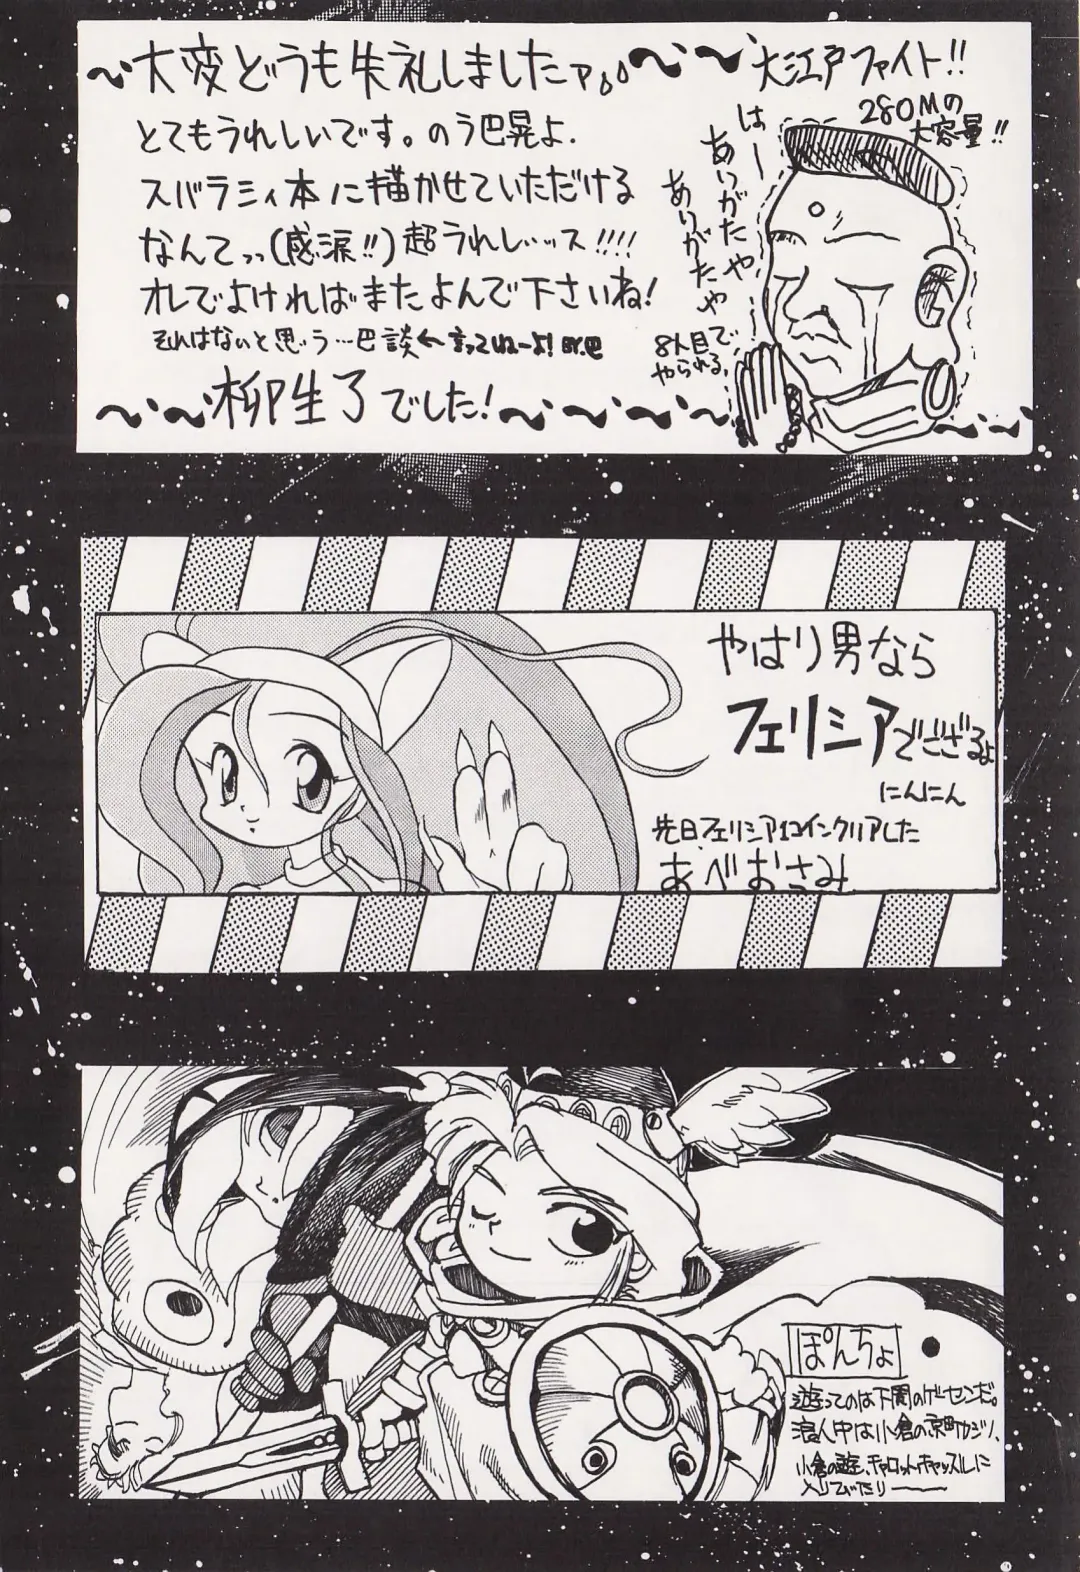 〜大変どうも失礼しましたァ。。〜〜
とてもうれしいです。のう巴晃よ.
スバラシィ本に描かせていただける
なんてっっ(感涙!!)超うれしぃッス!!!!
オレでよければまたよんで下さいね!
それはないと思う…巴談←言ってねーよ! BY.巴
〜〜柳生了でした!〜〜〜〜
大江戸ファイト!!
280Mの
大容量!!
はー
ありがたや
ありがたや
8人目で
やられる。
やはり男なら
フェリシアでござるよ
にんにん
先日フェリシア1コインクリアした
あべおさみ
ぽんちょ
遊ってのは下関のゲーセンだ。
浪人中は小倉の京町カジノ、
小倉の遊、キャロットキャッスルに
入りびたり〜